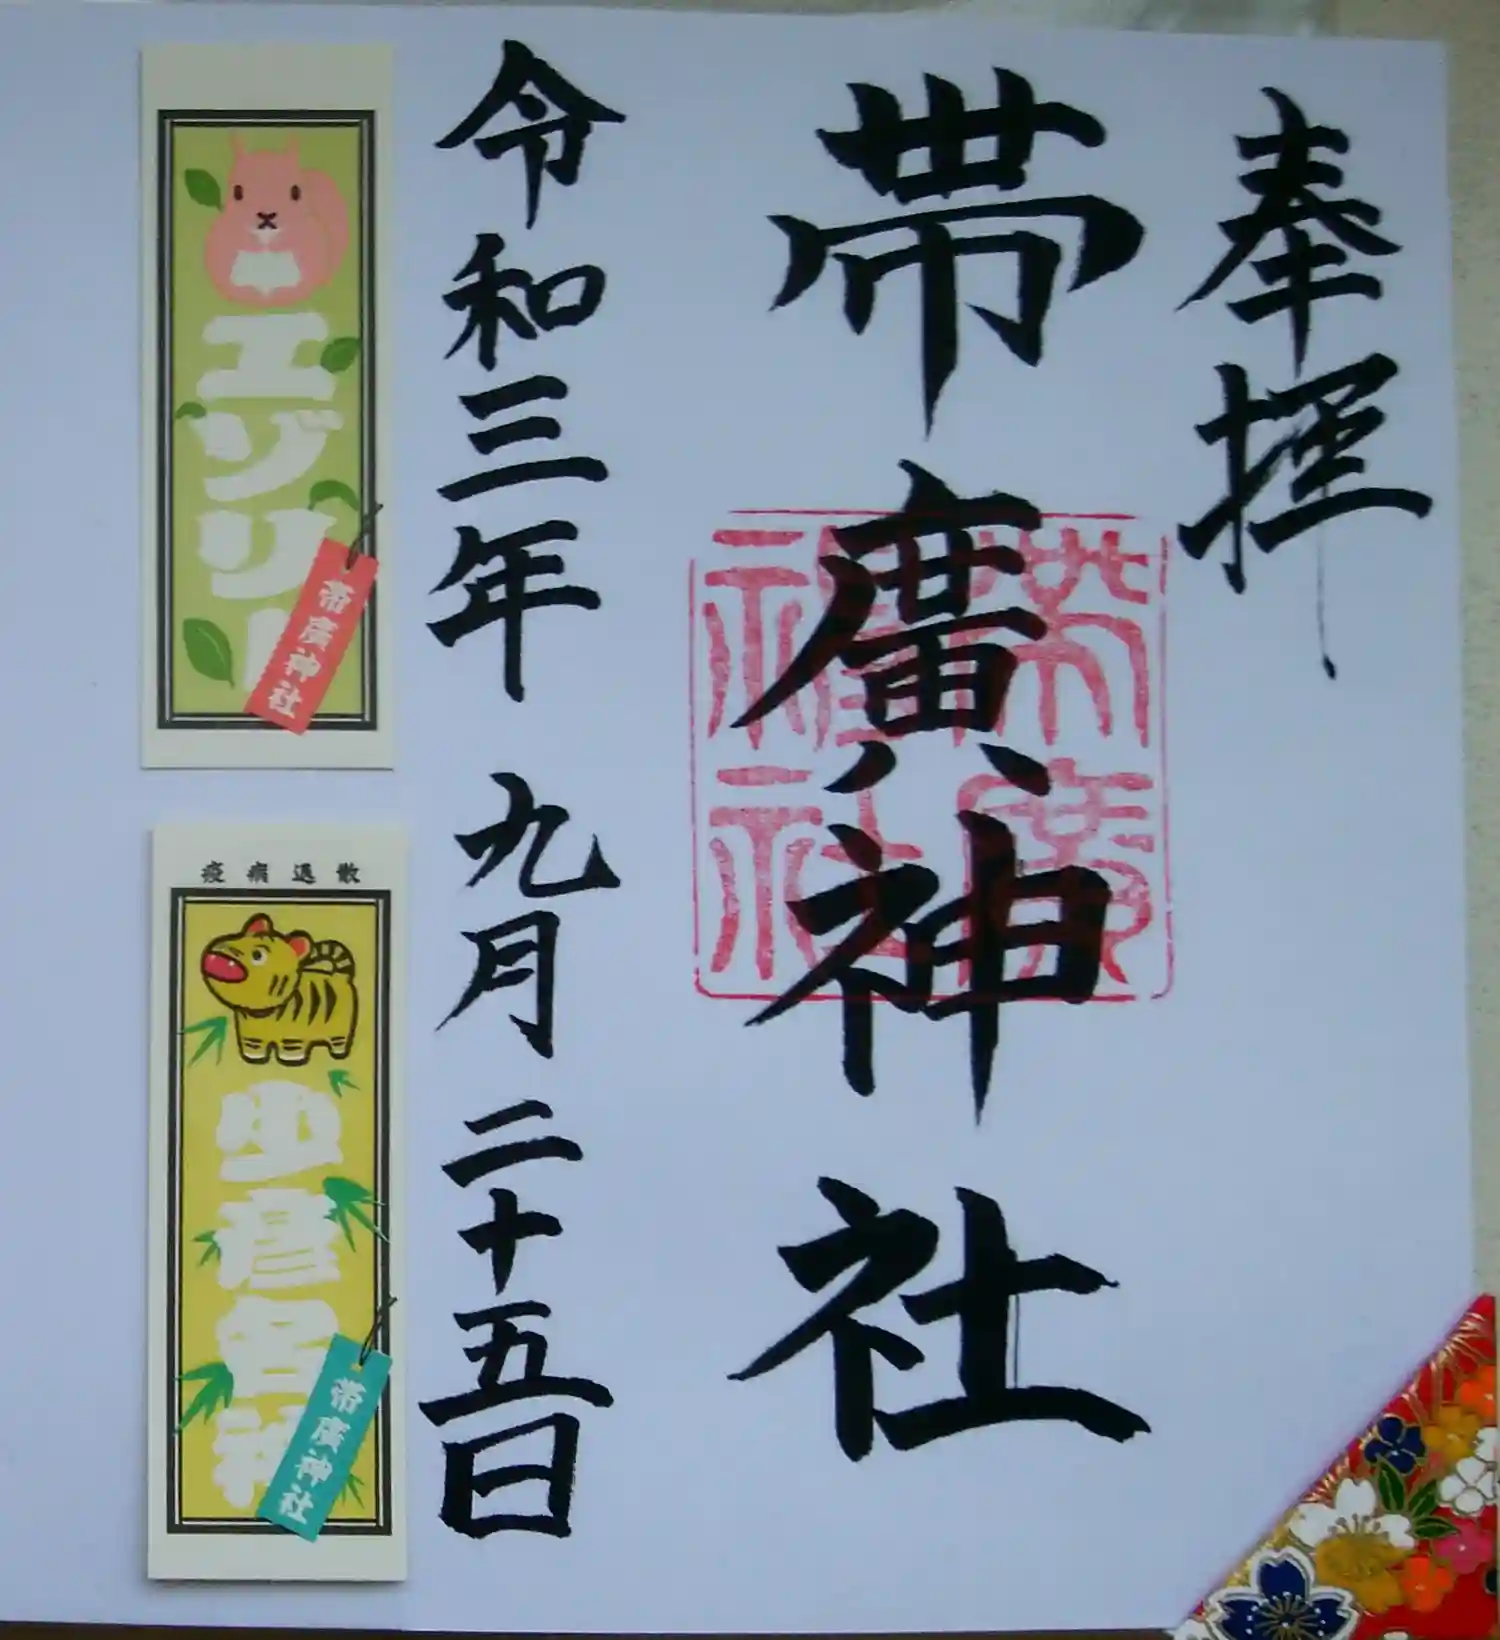 奉拝
帯廣神社
帯廣神社
令和三年 九月 二十五日
エゾリー
帯廣神社
疫病退散
少彦名神
帯廣神社